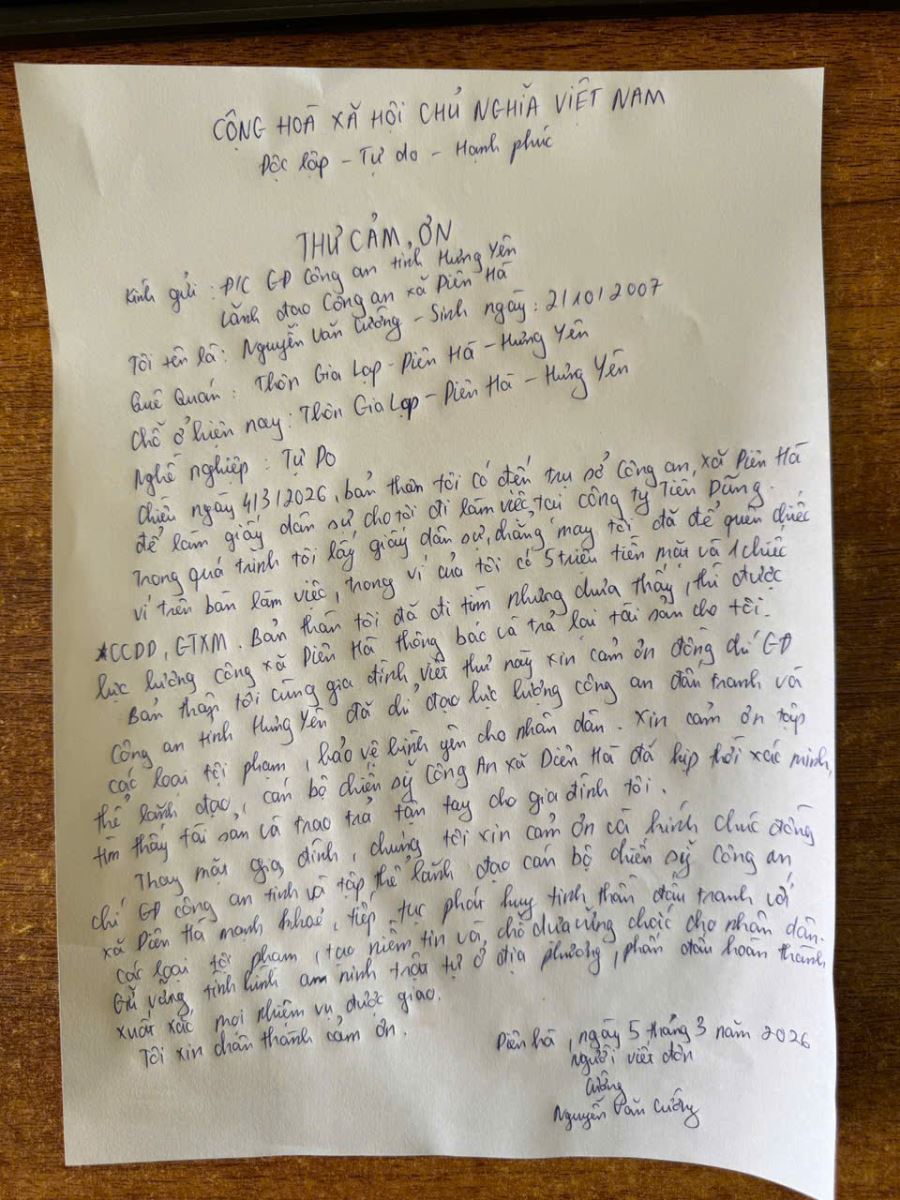 CỘNG HOÀ XÃ HỘI CHỦ NGHĨA VIỆT NAM
Độc lập - Tự do - Hạnh phúc
THƯ CẢM ƠN
Kính gửi: Đ/C GĐ Công an tỉnh Hưng Yên
Lãnh đạo Công an xã Diên Hà
Tôi tên là: Nguyễn Văn Cường - Sinh ngày: 2/10/2007
Quê Quán: Thôn Gia Lạp - Diên Hà - Hưng Yên
Chỗ ở hiện nay: Thôn Gia Lạp - Diên Hà - Hưng Yên
Nghề nghiệp: Tự Do
Chiều ngày 4/3/2026, bản thân tôi có đến trụ sở Công an, xã Diên Hà
để làm giấy dân sự cho tôi đi làm việc, tại công ty Tiến Dũng.
Trong quá trình tôi lấy giấy dân sự, chẳng may tôi đã để quên chiếc
ví trên bàn làm việc, trong ví của tôi có 5 triệu tiền mặt và 1 chiếc
*CCDD, GTXM. Bản thân tôi đã đi tìm nhưng chưa thấy, thì được
lực lượng công xã Diên Hà thông báo và trả lại tài sản cho tôi.
Bản thân tôi cùng gia đình viết thư này xin cảm ơn đồng chí GĐ
Công an tỉnh Hưng Yên đã chỉ đạo lực lượng công an đấu tranh với
các loại tội phạm, bảo vệ bình yên cho nhân dân. Xin cảm ơn tập
thể lãnh đạo, cán bộ chiến sỹ Công An xã Diên Hà đã kịp thời xác minh,
tìm thấy tài sản và trao trả tận tay cho gia đình tôi.
Thay mặt gia đình, chúng tôi xin cảm ơn và kính chúc đồng
chí GĐ công an tỉnh và tập thể lãnh đạo cán bộ chiến sỹ Công an
xã Diên Hà mạnh khoẻ, tiếp tục phát huy tinh thần đấu tranh với
các loại tội phạm, tạo niềm tin và chỗ dựa vững chắc cho nhân dân.
Giữ vững tình hình an ninh trật tự ở địa phương, phấn đấu hoàn thành
xuất xắc mọi nhiệm vụ được giao.
Tôi xin chân thành cảm ơn.
Diên hà, ngày 5 tháng 3 năm 2026
Người viết đơn
Cường
Nguyễn Văn Cường